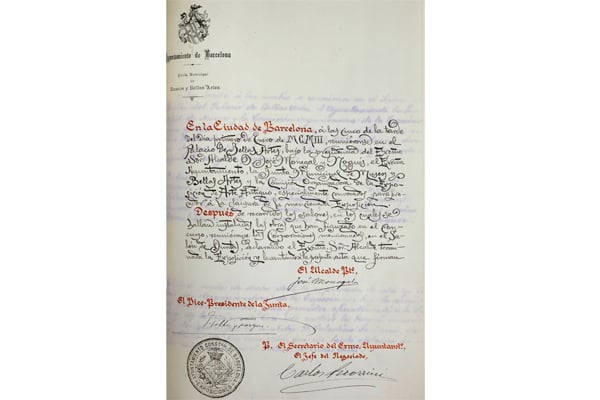 Ayuntamiento de Barcelona
Junta Municipal
de
Museos y Bellas Artes
En la Ciudad de Barcelona, á las cinco de la tarde
del día primero de Enero de MCMIII, reuniéronse en el
Palacio de Bellas Artes, bajo la presidencia del Excmo
Sr. Alcalde D. José Monegal y Nogués, el Excmo
Ayuntamiento, la Junta Municipal de Museos y
Bellas Artes y la Comisión Organizadora de la Expo-
sición de Arte Antiguo, especialmente convocados para pro-
ceder á la clausura de la mencionada Exposición.
Después de recorrido los salones, en los cuales se
hallan instaladas las obras que han figurado en el Con-
curso, reuniéronse las Corporaciones mencionadas, en el Sa-
lón de Juntas, declarando el Excmo. Sr. Alcalde termi-
nada la Exposición y levantando la presente acta que firman
El Alcalde Pte.
José Monegal
El Vice-Presidente de la Junta.
P. El Secretario del Exmo. Ayuntamto.
El Jefe del Negociado,
Carlos Pirozzini
AYUNTAMIENTO CONSTITUCIONAL DE BARCELONA